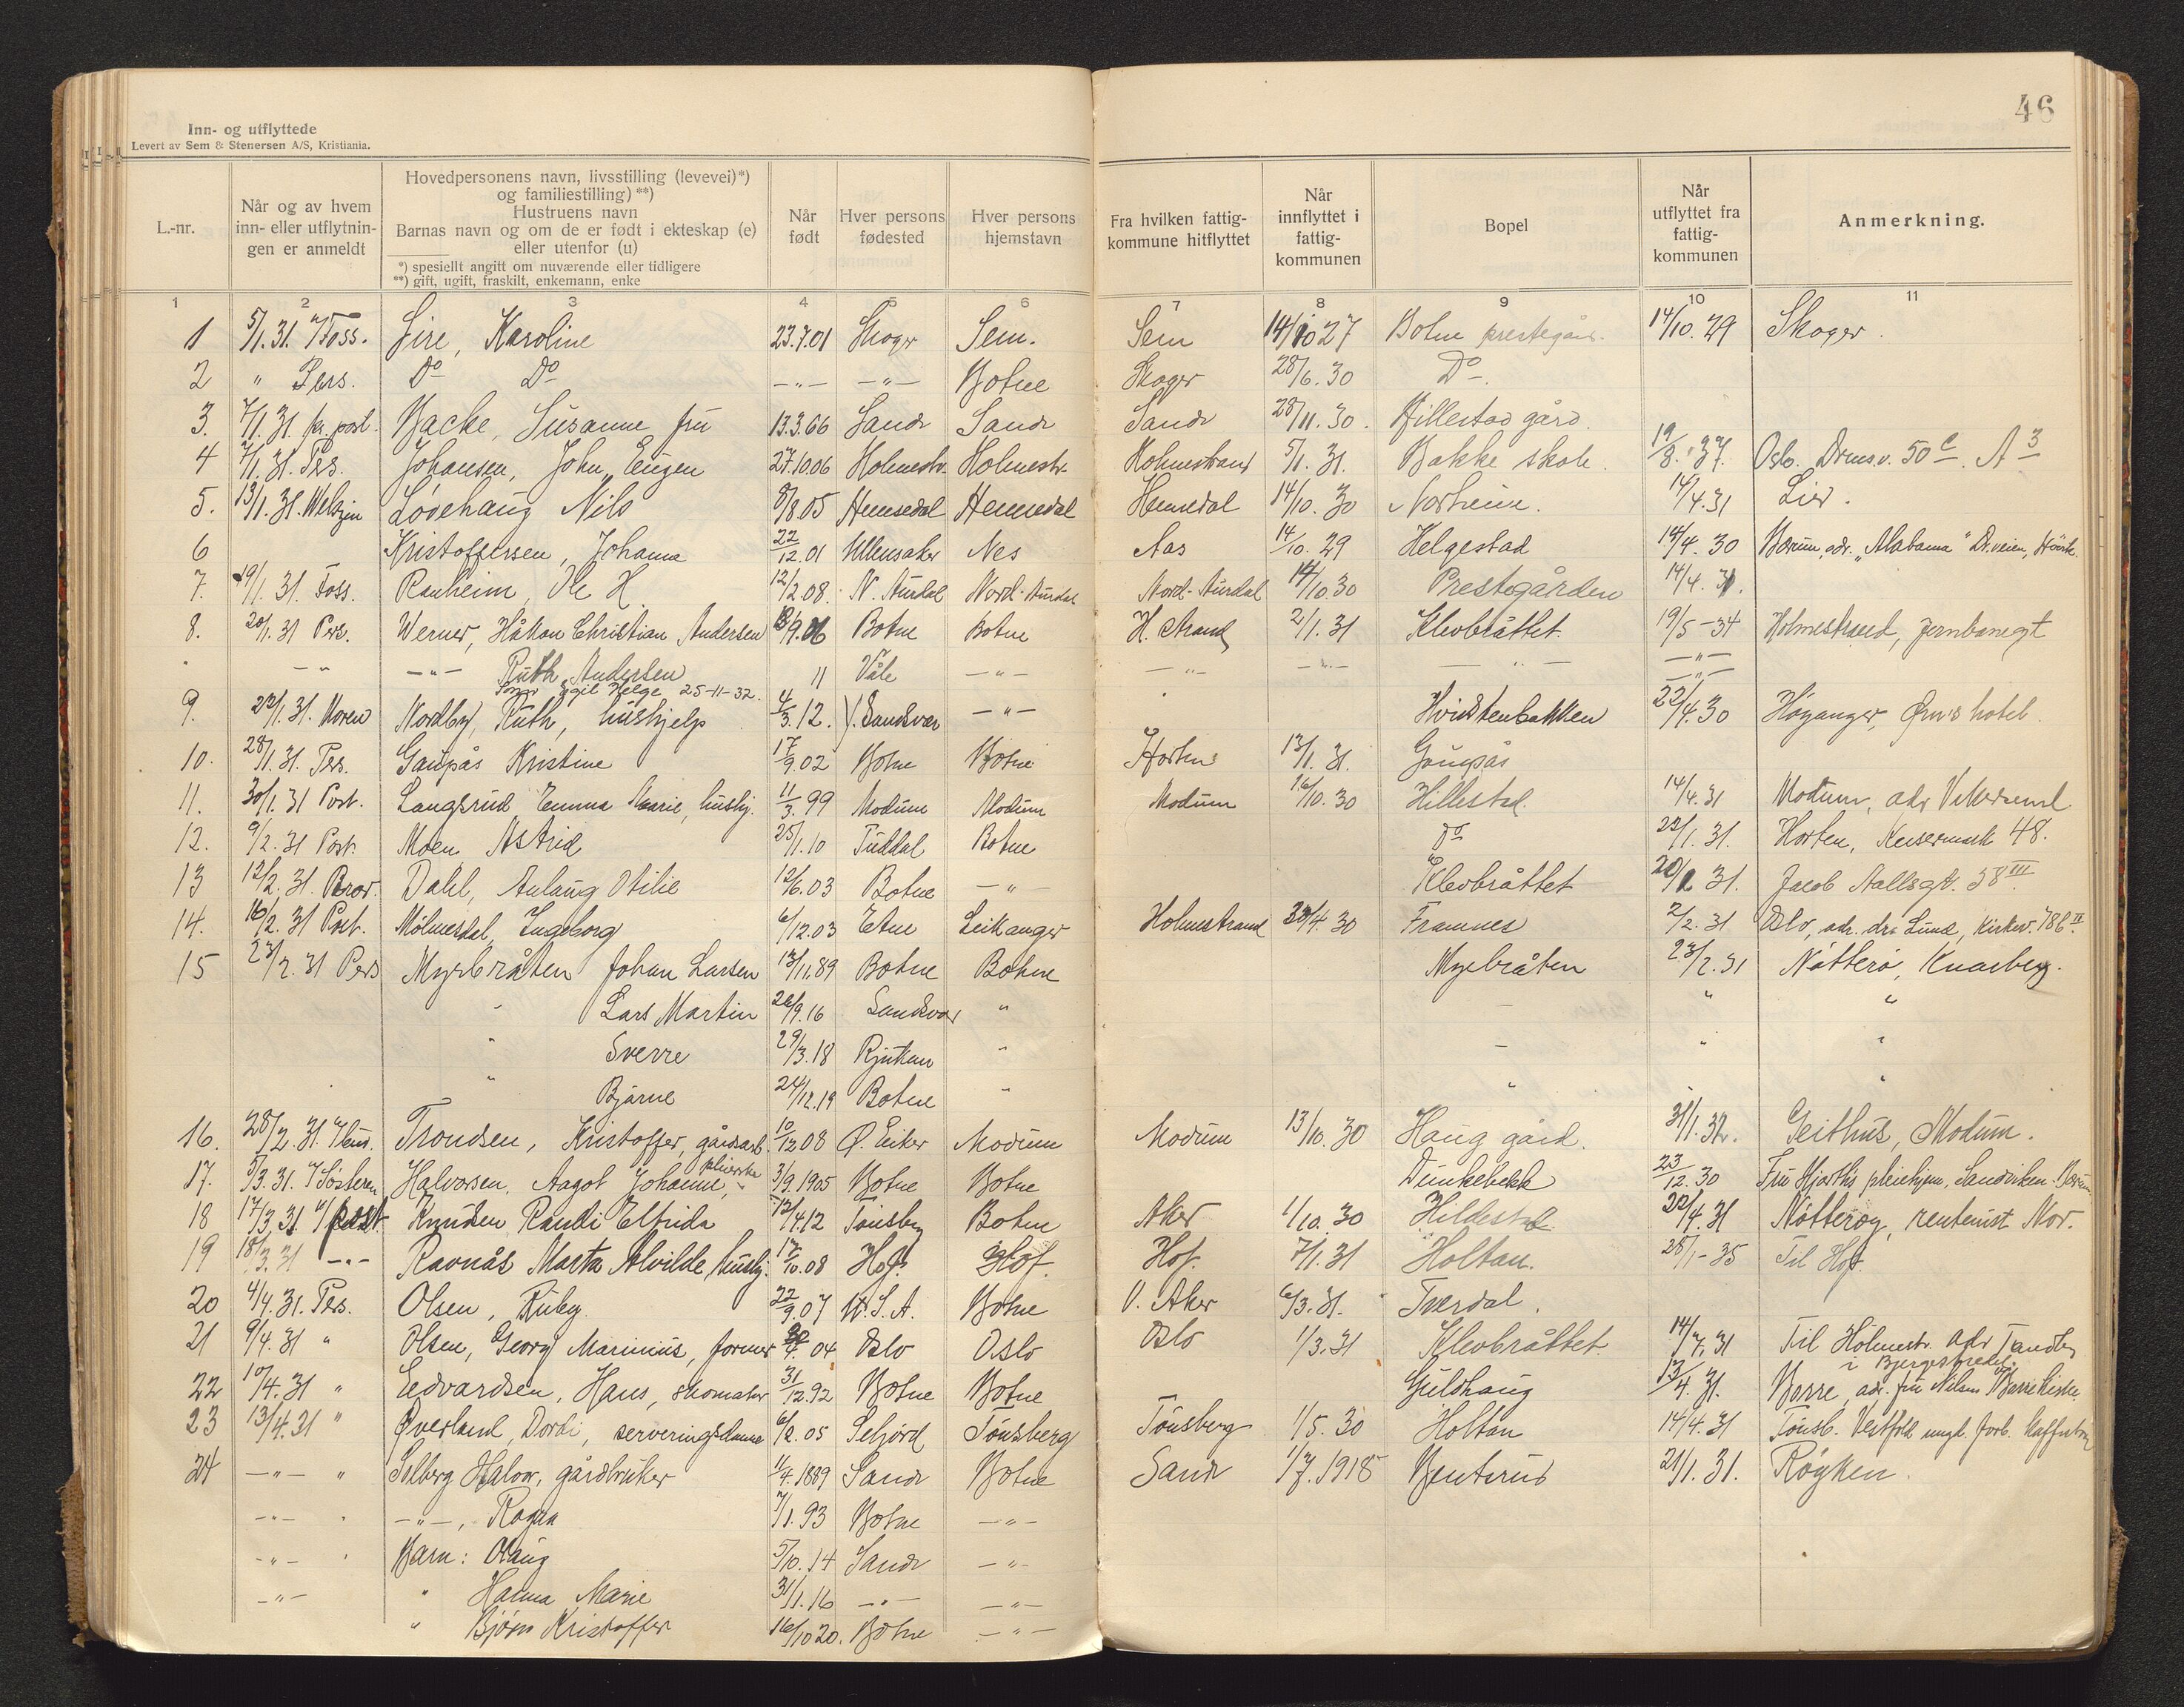 46
Inn- og utflyttede
Levert av Sem & Stenersen A/S, Kristiania.
L.-nr.
Når og av hvem inn- eller utflytnin-gen er anmeldt
Hovedpersonens navn, livsstilling (levevei)*) og familiestilling)**)
Hustruens navn
Barnas navn og om de er født i ekteskap (e) eller utenfor (u)
*) spesiellt angitt om nuværende eller tidligere
**) gift, ugift, fraskilt, enkemann, enke
Når født
Hver persons fødested
Hver persons hjemstavn
Fra hvilken fattig-kommune hitflyttet
Når innflyttet i fattig-kommunen
Bopel
Når utflyttet fra fattig-kommunen
Anmerkning.
1 2 3 4 5 6 7 8 9 10 11
1 5/1.31. Foss. Gire, Karoline 23.7.01 Skoger Sem. Sem 14/10 27 Botne prestegård. 14/10.29 Skoger.
2 " Pers. Do Do -"- -"- Botne Skoger 28/6.30 Do.
3. 7/1.31. pr. post. Backe, Susanne fru 13.3.66 Sande Sande Sande 28/11.30. Hillestad gård.
4 7/1.31. Pers. Johansen, John Eugen 27.10.06 Holmestr. Holmestr. Holmestrand 5/1.31. Bakke skole. 19/8.37. Oslo. Drmsv. 50 c. A 3
5. 13/1.31. Løvehaug Nils 8/8.05 Hemsedal Hemsedal Hemsedal 14/10.30 Norheim. 14/4.31 Lier.
6 Kristoffersen, Johanna 22/12.01 Ullensaker Nes Aas 14/10.29 Helgestad 14/4.30 Bærum, adr. "Alabama" Dr.veien, Hövik
7. 19/1.31. Foss. Ranheim, Ole H 12/2.08. N. Aurdal Nord-Aurdal Nord-Aurdal 14/10.30 Prestegården 14/4.31.
8. 20/1.31 Pers. Werner, Håkon Christian Andersen 13/9.06 Botne Botne H. strand 2/1.31 Klevbråttet 19/5-34 Holmestrand, Jernbanegt
" -"- -"- Ruth Andersen 11 Våle -"- -"- -"- -"- -"-
Sønn Egil Helge 25-11-32. -"-
9. 22/1.31. Noren Nordby, Ruth, hushjelp 4/3.12. Y. Sandsvær -"- Hvidstenbakken 22/4.30 Høyanger, Ørn's hotel.
10. 28/1.31. Pers. Gaupås Kristine 17/9.02 Botne Botne Horten 13/1.31. Gaupås
11. 30/1.31 Post. Langsrud Emma Marie, hushj. 11/3.99 Modum Modum Modum 16/10.30 Hillestad. 14/4.31 Modum, adr Vikersund
12. 9/2.31 Post. Moen Astrid 25/1.10 Tuddal Botne Do 22/1.31. Horten, Keisermark 48.
13 12/2.31. Bror. Dahl, Anlaug Otilie 12/6.03 Botne -"- Klevbråttet 20/2 31. Jacob Aallsgt. 58 III.
14. 16/2.31 Post. Mölmesdal, Ingeborg 6/12.03 Etne Leikanger Holmestrand 30/4.30 Framnes 2/2.31 Oslo, adr. dr. Lund, Kirkev. 786 II.
15 23/2.31 Pers Myrbråten Johan Larsen 13/11.89 Botne Botne Myrbråten 23/2.31 Nötterö, Knarberg.
" Lars Martin 26/9.16 Sandsvær " - " "
" Sverre 29/3.18 Rjukan " - " "
" Bjarne 24/12.19 Botne " " " "
16. 28/2.31. Trondsen, Kristoffer, gårdsarb. 10/12 08 Ø. Eiker Modum Modum 13/10.30 Haug gård. 31/1.32. Geithus, Modum.
17. 5/3.31. Søsteren Halvorsen, Aagot Johanne, pleierske 3/9.1905 Botne Botne Dunkebekk 23/12.30 Fru Hjorths pleiehjem, Sandviken. Bærum
18 17/3 31 post Knudsen Randi Elfrida 12/4.12 Tønsberg Botne Aker 1/10.30 Hildestad 22/4.31 Nötteröy, rentenist Nor.
19 18/3.31 -"- Ravnås Marta Alvilde, hushj. 17/10.08 Hof. Hof. Hof. 7/1.31 Holtan. 28/1-35 Til Hof.
20 4/4.31. Pers. Olsen, Ruby. 22/9.07 U.S.A. Botne V. Aker 6/3.31. Tverdal.
21 9/4.31 " Olsen, Georg Marinius, former 04 Oslo Oslo Oslo 1/3.31 Klevbråttet 14/4.31 Til Holmestr. adr Tandberg i Bjergesbredd.
22 10/4.31 " Eedvardsen, Hans, skomaker 31/12.92 Botne Botne Guldhaug 13/4.31. Borre, adr. fru Nilsen Borre kirke
23 13/4.31 " Øverland, Dordi, serveringsdame 6/2.05 Seljord Tønsberg Tönsberg 1/5.30 Holtan 14/4.31 Tönsb. Vestfold ungd. forb.
24 -"- " Solberg Halvor, gårdbruker 11/4.1889 Sande Botne Sande 1/7.1918 Bentsrud 21/1.31. Røyken.
-"- " -"-, Ragna 7/1.93 Botne -"-
-"- " Barn: Olaug 5/10.14 Sande -"-
-"- " Hanna Marie 31/1.16 -"- -"-
" Bjørn Kristoffer 16/10 20. Botne -"-